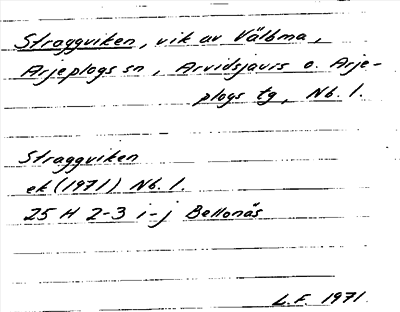 Straggviken, vik av Välbma,
Arjeplogs sn, Arvidsjaurs o. Arje-
plogs tg, Nb. l.
Straggviken
ek (1971) Nb. l.
25 H 2-3 i-j Bellonäs
L.F. 1971.